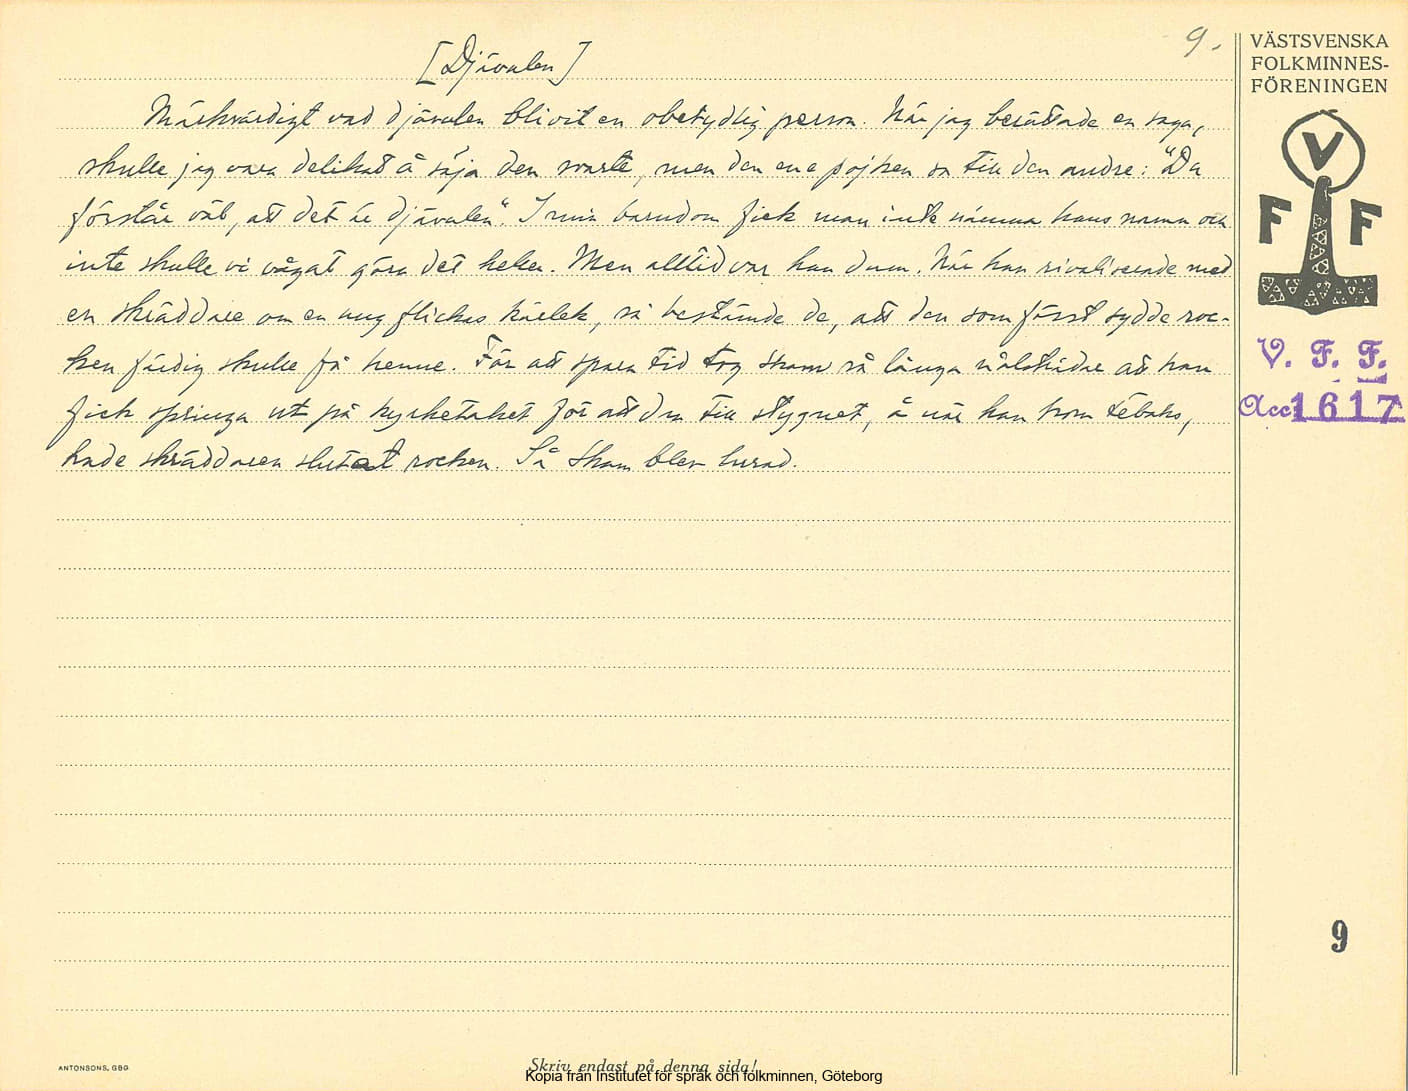 9.
[Djävulen]
Märkvärdigt vad djävulen blivit en obetydlig person. När jag berättade en saga,
skulle jag vara delikat å säja den svarte, men den ene pojken sa till den andre: "Du
förstår väl, att det är djävulen". I min barndom fick man inte nämna hans namn och
inte skulle vi vågat göra det heller. Men alltid var han dum. När han rivaliserade med
en skräddare om en ung flickas kärlek, så bestämde de, att den som först sydde roc-
ken färdig skulle få henne. För att spara tid tog Skam så långa nåltrådar att han
fick springa ut på kyrketaket för att dra till stygnet, å när han kom tebaks,
hade skräddaren slutat rocken. Så Skam blev lurad.
VÄSTSVENSKA
FOLKMINNES-
FÖRENINGEN
V
F F
V. F. F.
Acc 1617
9
ANTONSONS, GBG
Skriv endast på denna sida!
Kopia från Institutet för språk och folkminnen, Göteborg